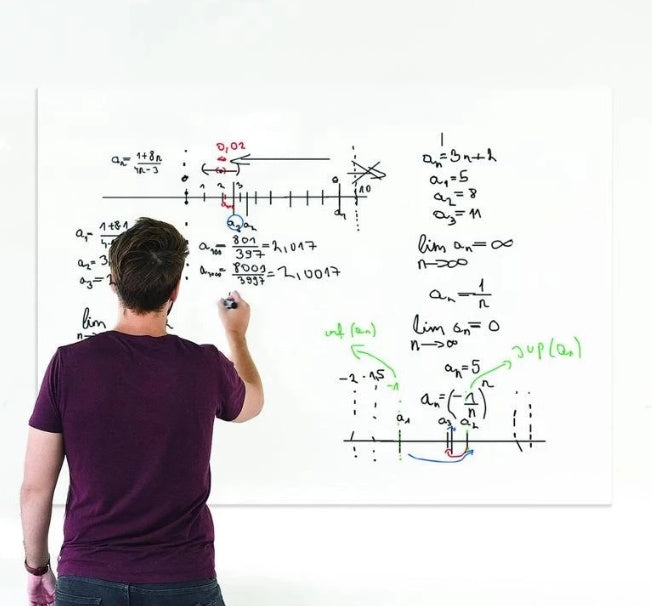 aₙ = (1+8n)/(4n-3)
0,02
1 2 3
10
a₁
a₁ = 1+8·1
a₂ = 3,
a₃ =
a₂ aₙ
a₁₀₀ = 801/397 = 2,017
a₁₀₀₀ = 8001/3997 = 2,0017
lim
n→
aₙ = 3n+2
a₁ = 5
a₂ = 8
a₃ = 11
lim aₙ = ∞
n→∞
aₙ = 1/n
lim aₙ = 0
n→∞
aₙ = 5
inf(aₙ)
sup(aₙ)
aₙ = (-1/n)ⁿ
-2 -1,5 -1
a₁ a₃ a₂